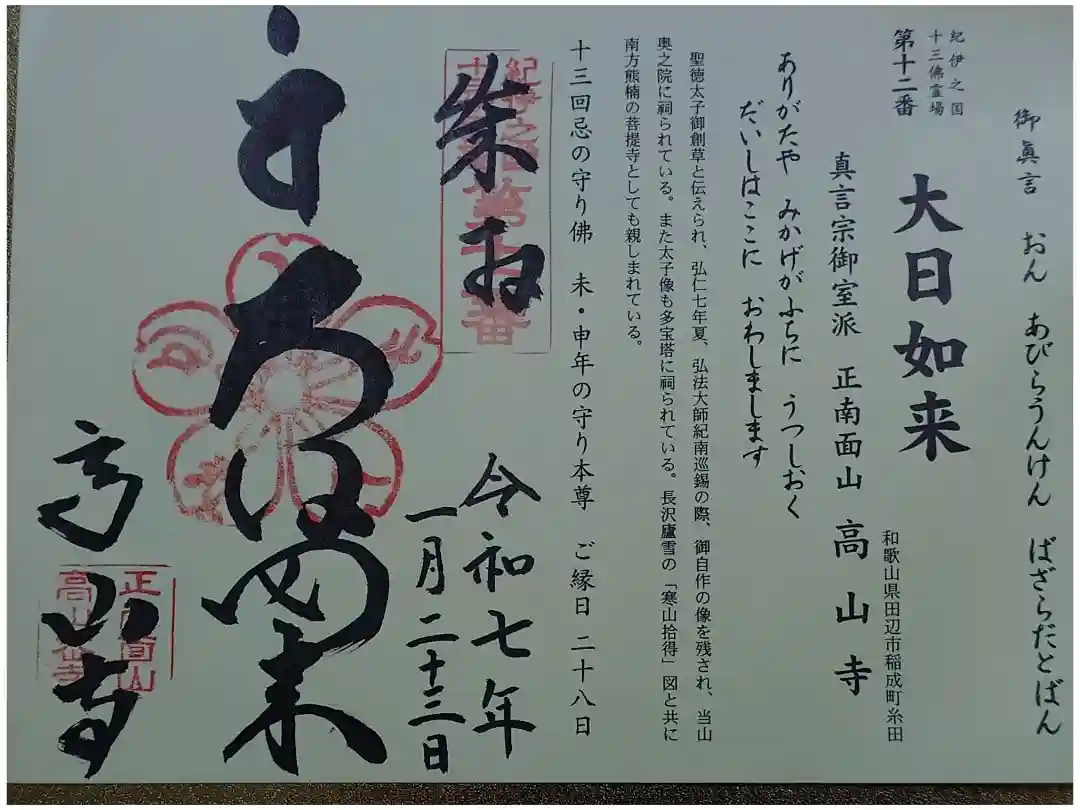 御眞言　おん　あびらうんけん　ばざらだとばん
紀伊之国
十三佛霊場
第十二番　大日如来
和歌山県田辺市稲成町糸田
真言宗御室派　正南面山　高山寺
ありがたや　みかげがふちに　うつしおく
だいしはここに　おわしまします
聖徳太子御創草と伝えられ、弘仁七年夏、弘法大師紀南巡錫の際、御自作の像を残され、当山
奥之院に祠られている。また太子像も多宝塔に祠られている。長沢廬雪の「寒山拾得」図と共に
南方熊楠の菩提寺としても親しまれている。
十三回忌の守り佛　未・申年の守り本尊　ご縁日　二十八日
紀伊之国
第十二番
令和七年
一月二十三日
高山寺
正南面山
高山寺